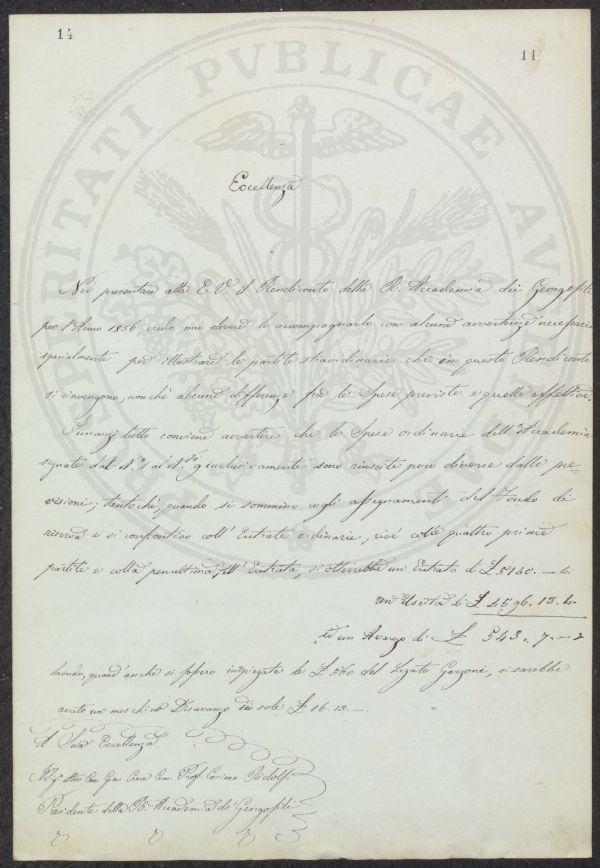 14
11
PROSPERITATI PVBLICAE AVGENDAE
Eccellenza
Nel presentare alla E. V. il Rendiconto della R. Accademia dei Georgofili
per l'Anno 1856 credo mio dovere lo accompagnarlo con alcune avvertenze necessarie
specialmente per illustrare le partite straordinarie che in questo Rendiconto
si rinvengono, nonché alcune differenze fra le Spese previste e quelle effettive.
Innanzi tutto conviene avvertire che le Spese ordinarie dell'Accademia
segnate dal N.° 1 al N.° 9 inclusivamente sono riescite poco diverse dalle pre=
visioni; tantoché, quando si sommino cogli assegnamenti del Fondo di
riserva e si confrontino coll'Entrate ordinarie, cioè colle quattro prime
partite e colla penultima dell'Entrata, si otterrebbe un'Entrata di £ 5140. — „
un'Uscita di £ 4596. 13. „
ed un Avanzo di £ 543. 7. — „
quand'anche si fossero impiegate le £ 560 del Legato Garzoni, si sarebbe
avuto un meschino Disavanzo di sole £ 16. 13. —
A Sua Eccellenza
Prof. Cosimo Ridolfi
Presidente della R. Accademia dei Georgofili